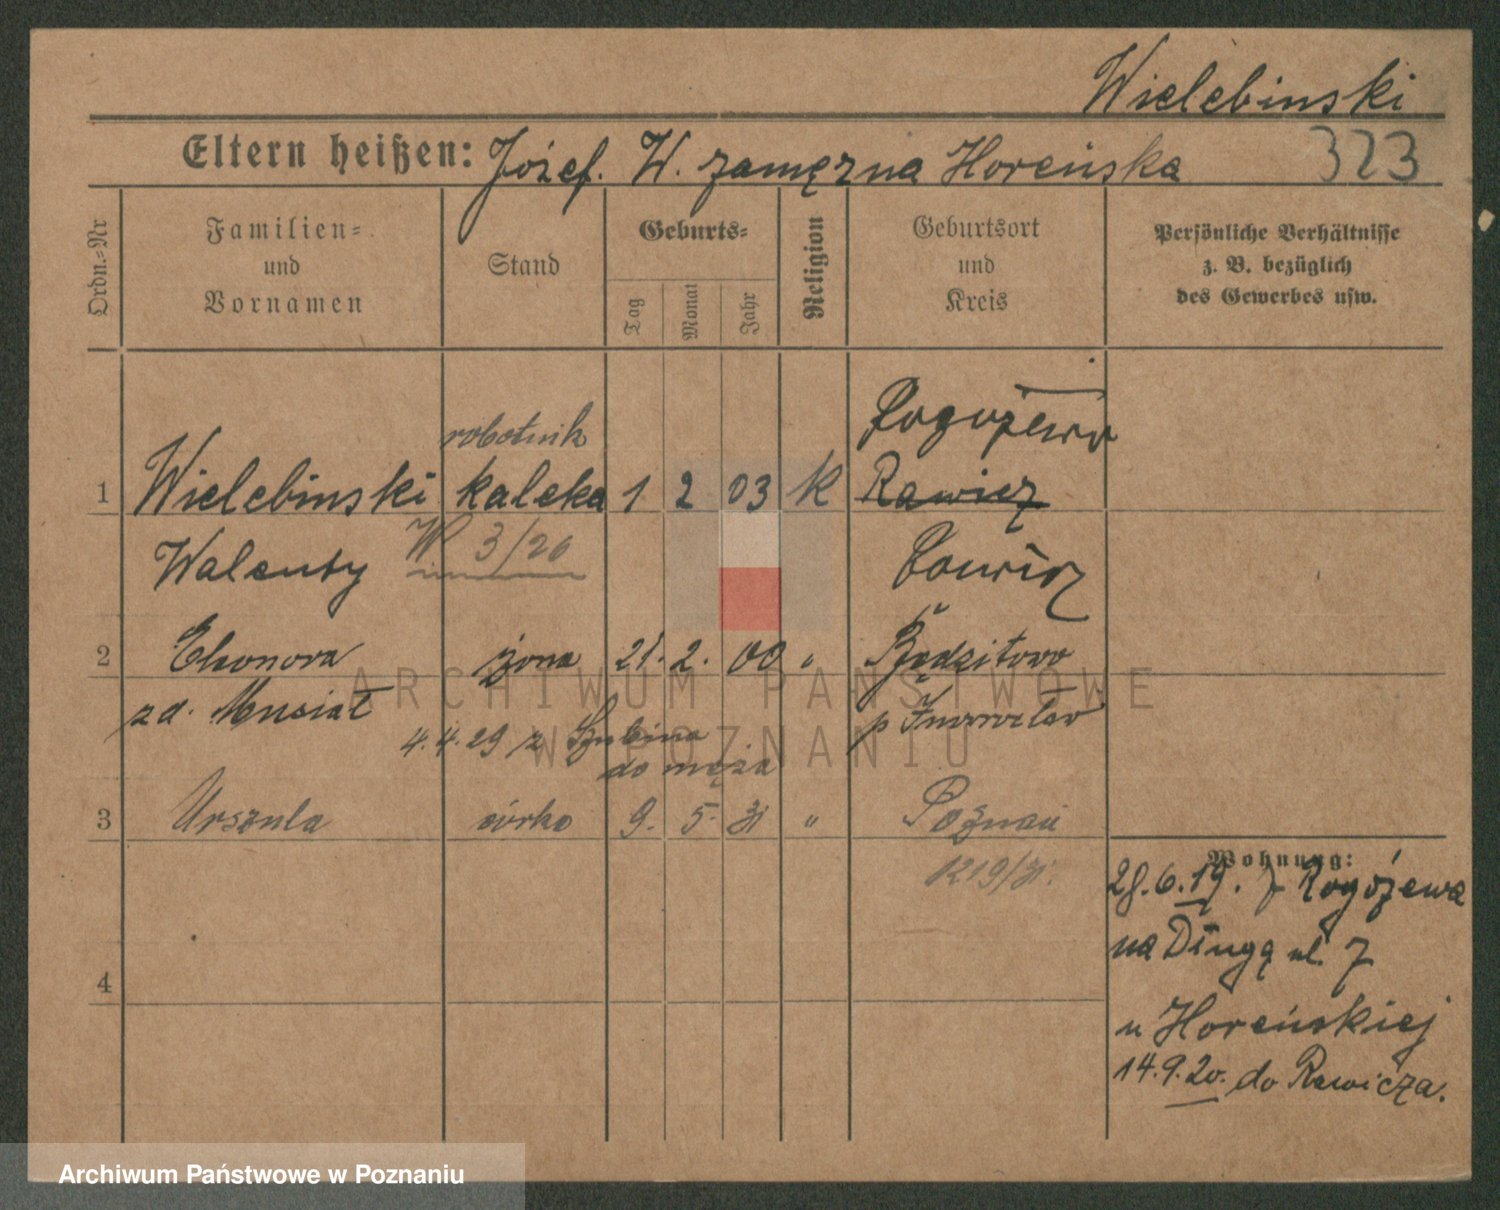 Wielebinski
Eltern heißen: Józef. W. zamęzna Horeńska 323
Ordn.=Nr
Familien=
und
Vornamen
Stand
Geburts=
Tag
Monat
Jahr
Religion
Geburtsort
und
Kreis
Persönliche Verhältnisse
z. B. bezüglich
des Gewerbes usw.
robotnik
1 Wielebinski kaleka 1 2 03 K Rawicz
Walenty W 3/26
2 Eleonora żona 21. 2. 00 "
zd. Musiał
4.4.29 z Szubina
do męża
3 Urszula córka 9. 5. 31 " Poznań
1219/31.
4
Wohnung:
28.6.19. z Rogóżewa
na Długą ul. 7
u Horeńskiej
14.9.20. do Rawicza.
ARCHIWUM PAŃSTWOWE
W POZNANIU
Archiwum Państwowe w Poznaniu